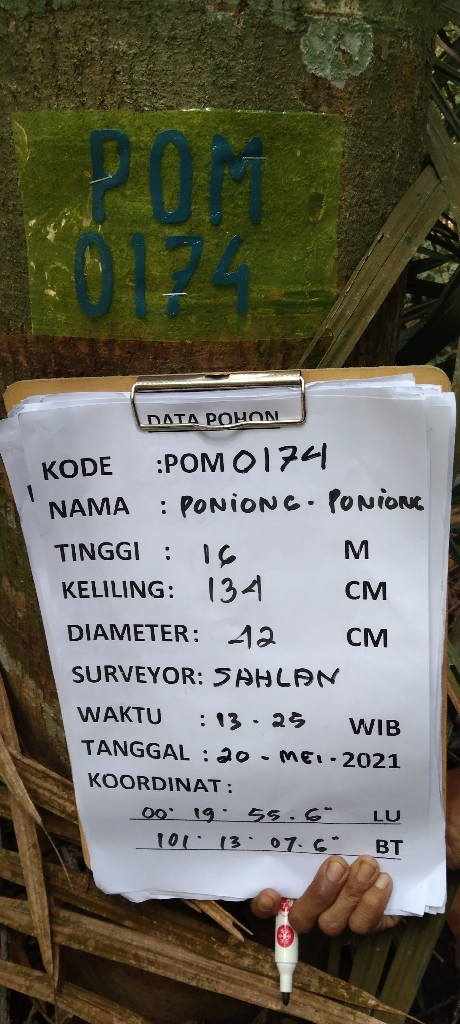 POM
0174
DATA POHON
KODE :POM 0174
NAMA : PONIONG - PONIONG
TINGGI : 16 M
KELILING: 134 CM
DIAMETER: 42 CM
SURVEYOR: SAHLAN
WAKTU : 13 - 25 WIB
TANGGAL : 20 - MEI - 2021
KOORDINAT :
00° 19' 55.6" LU
101° 13' 07.6" BT